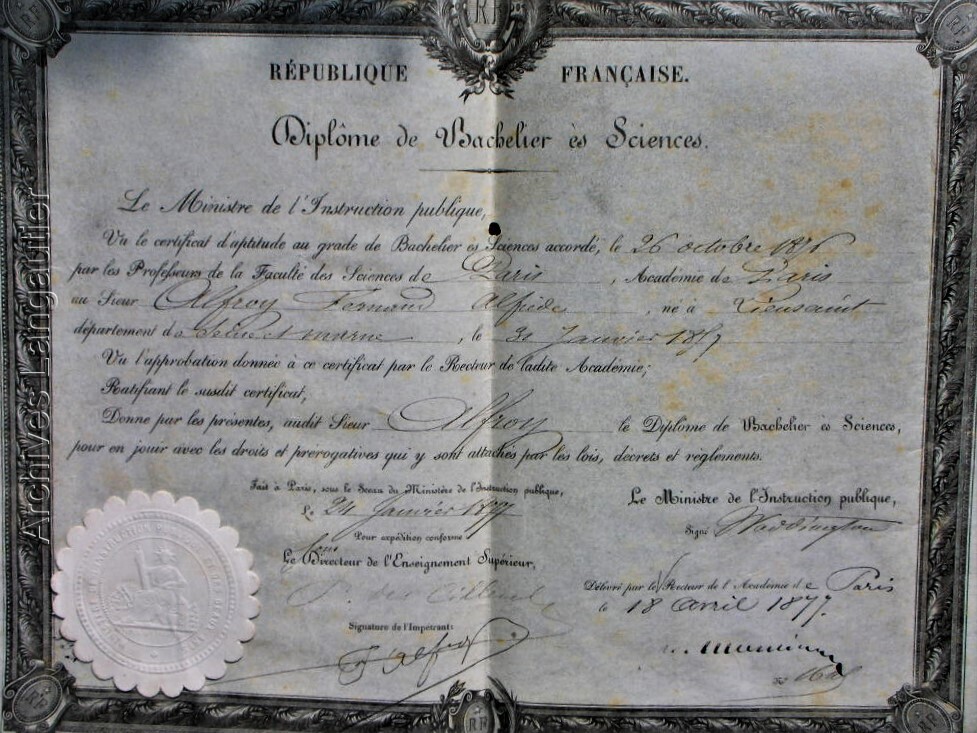 RF
RÉPUBLIQUE FRANÇAISE.
Diplôme de Bachelier ès Sciences.
Le Ministre de l'Instruction publique,
Vu le certificat d'aptitude au grade de Bachelier es Sciences accordé, le 26 octobre 1876
par les Professeurs de la Faculté des Sciences de Paris, Académie de Paris
au Sieur Alfroy Fernand Alfrède, né à Lieusaint
département de Seine et marne, le 30 Janvier 1857
Vu l'approbation donnée à ce certificat par le Recteur de ladite Académie;
Ratifiant le susdit certificat,
Donne par les présentes, audit Sieur Alfroy le Diplôme de Bachelier es Sciences,
pour en jouir avec les droits et prerogatives qui y sont attachés par les lois, décrets et reglements.
Fait à Paris, sous le Sceau du Ministère de l'Instruction publique,
Le 24 Janvier 1877
Pour expédition conforme
Le Directeur de l'Enseignement Supérieur,
Signature de l'Impétrant:
F Alfroy
Le Ministre de l'Instruction publique,
Signé Waddington
Délivré par le Recteur de l'Académie de Paris
le 18 avril 1877.
RF
RF
RF
Archives Langaultier